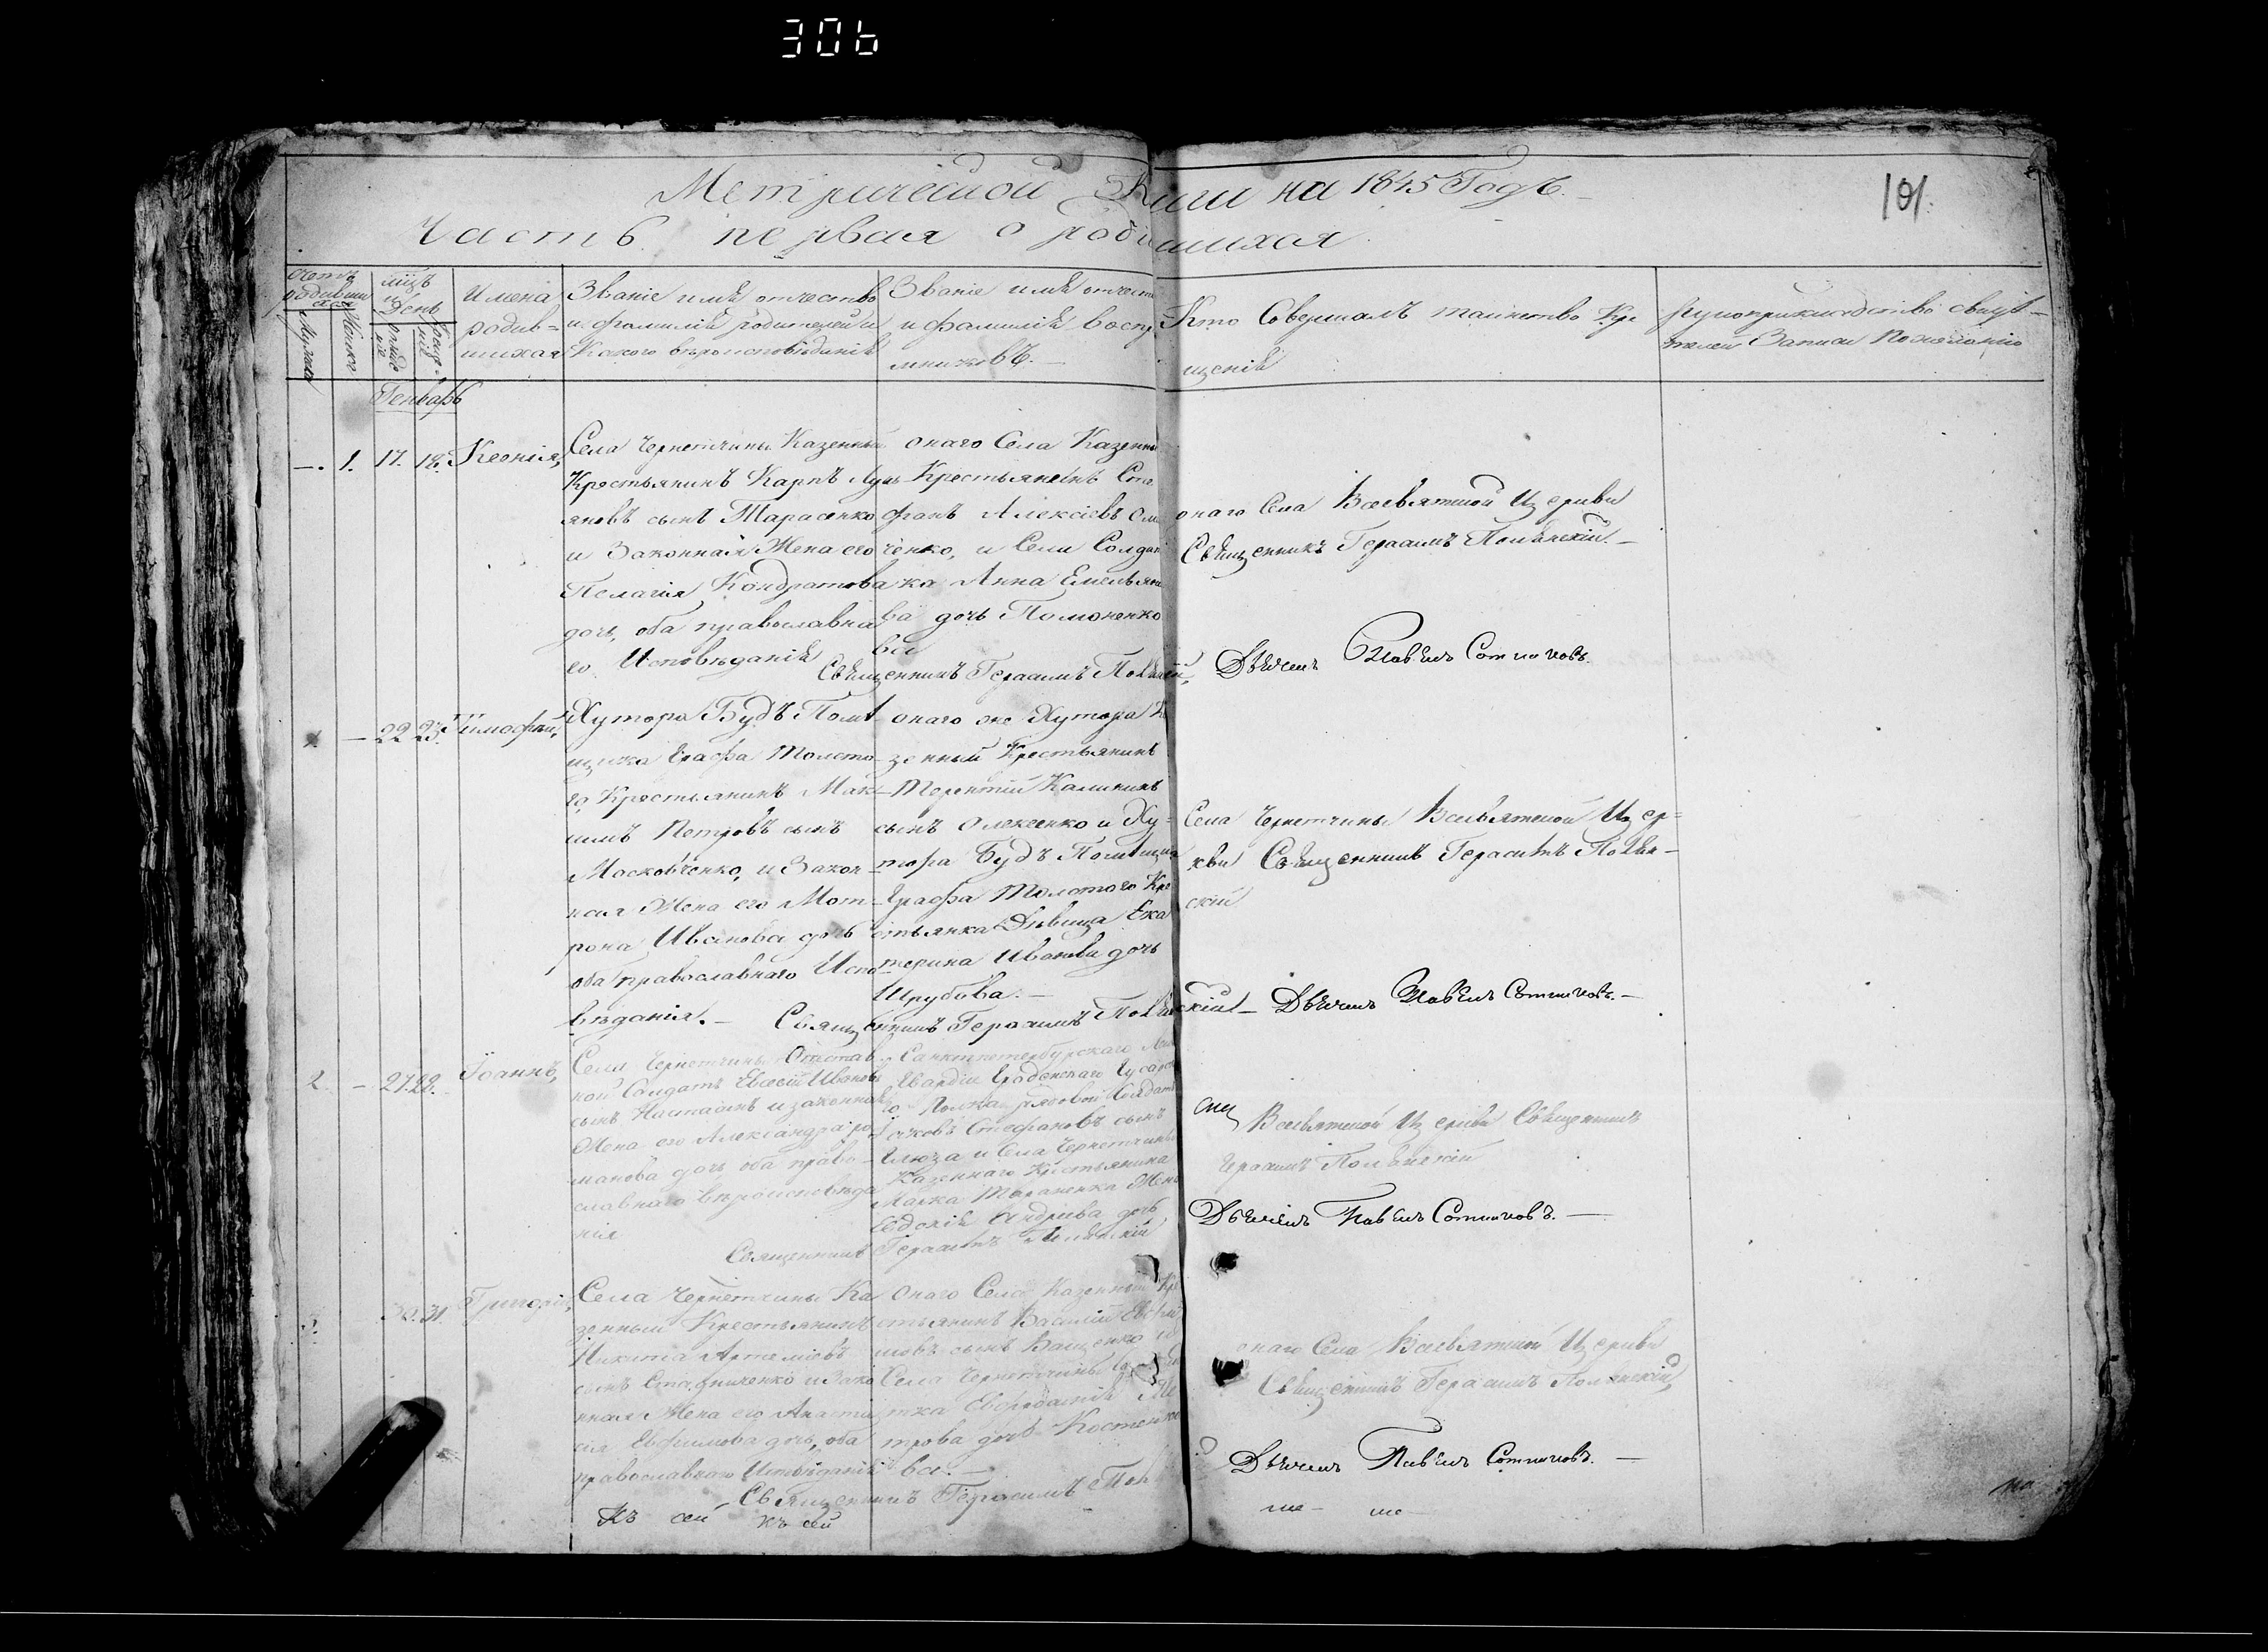 306
Метрической Книги на 1845 Годъ.
101
Часть первая о родившихся
Счетъ родившихся
Мужеска
Женска
мцъ и День
рожденіе
крещеніе
Имена родив=
шихся
Званіе имя отчество
и фамилія родителей и
Какого вѣроисповѣданія
Званіе имя отчест
и фамилія воспр
мниковъ.
Кто Совершалъ таинство Кре
щенія
Рукоприкладство свидѣ-
телей Записи По желанію
Генварь
—. 1. 17. 18. Ксенія,
Села Чернетчины Казенный
Крестьянинъ Карпъ Лукь
яновъ сынъ Тарасенко
и Законная Жена его
Пелагія Кондратова
дочь, оба православна
го Исповѣданія
онаго Села Казенны
Крестьянинъ Сте
фанъ Алексіевъ Оме
ченко, и Села Солдат
ка Анна Емельяно
ва дочь Помоненко
ва
онаго Села Всевятской Церкви
Священникъ Герасимъ Полѣнскій
Священникъ Герасимъ Полѣнскій, Дьячекъ Павелъ Сотниковъ.
1. — 22 23. Тимофей,
Хутора Будъ Помѣ
щика Графа Толсто
го, Крестьянинъ Мак
симъ Петровъ сынъ
Московченко, и Закон
ная Жена его Мот
рона Иванова дочь
оба православнаго Испо
вѣданія.
онаго же Хутора Ка
зенный Крестьянинъ
Терентій Калининъ
сынъ Олексенко и Ху=
тора Будъ Помѣщика
Графа Толстого Кре
стьянка Дѣвица Ека
терина Иванова дочь
Шрубова.
Села Чернетчины Всевятской Цер=
кви Священникъ Герасимъ Полѣн-
скій
Священникъ Герасимъ Полѣнскій — Дьячекъ Павелъ Сотниковъ.
2 — 27. 28. Іоаннъ,
Села Чернетчины Отстав
ной Солдатъ Евсевій Ивановъ
сынъ и законная
Жена его Александра Ро
манова дочь оба право
славнаго вѣроисповѣда
нія
Санктпетербурскаго Лей
Гвардіи Гродненскаго Гусарска
го Полка рядовой Солдатъ
Яковъ Стефановъ сынъ
и Села Чернетчины
Казеннаго Крестьянина
Марка Тараненка Жена
Евдокія Андреева дочь
Всевятской Церкви Священникъ
Герасимъ Полѣнскій
Священникъ Герасимъ Полѣнскій
Дьячекъ Павелъ Сотниковъ.
3. 30. 31. Григорій,
Села Чернетчины Ка
зенный Крестьянинъ
Никита Артеміевъ
сынъ и Зако
нная Жена его Анаста
сія Евфимова дочь, оба
православнаго Исповѣданія
онаго Села Казенный Кре
стьянинъ Василій
сынъ Ващенко и
Села Чернетчины
Евфросинія Пе
трова дочь Костенко
ва.
онаго Села Всевятской Церкви
Священникъ Герасимъ Полѣнскій,
Священникъ Герасимъ Пол
Дьячекъ Павелъ Сотниковъ.
Къ сей къ сей